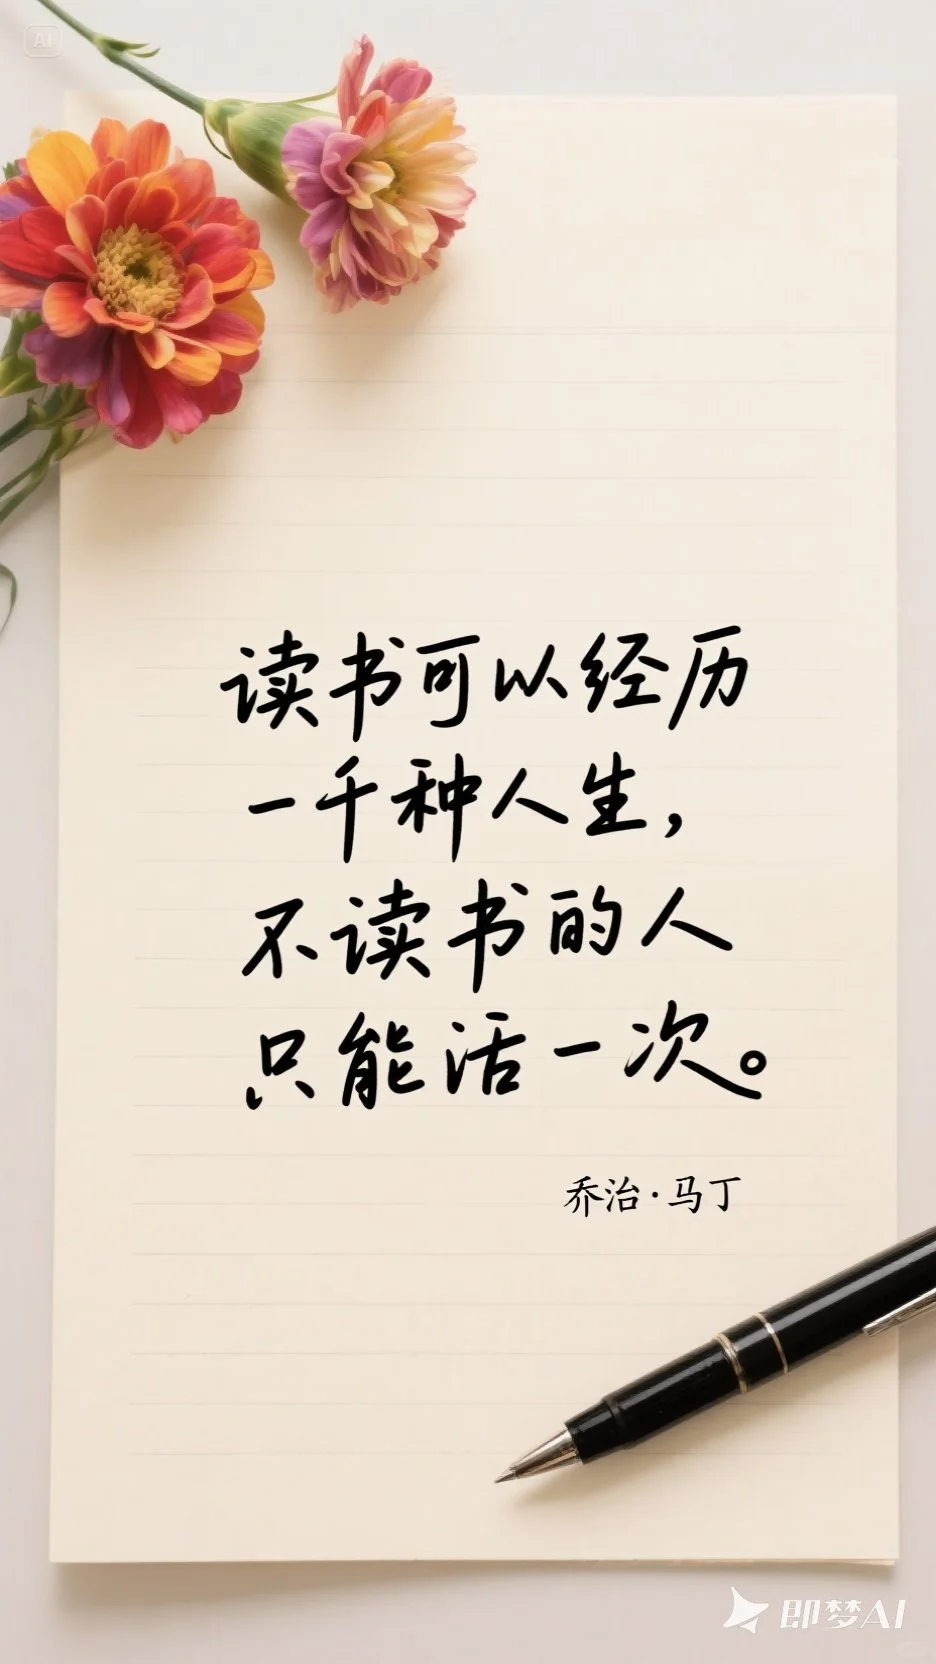 AI
读书可以经历
一千种人生，
不读书的人
只能活一次。
乔治·马丁
即梦AI